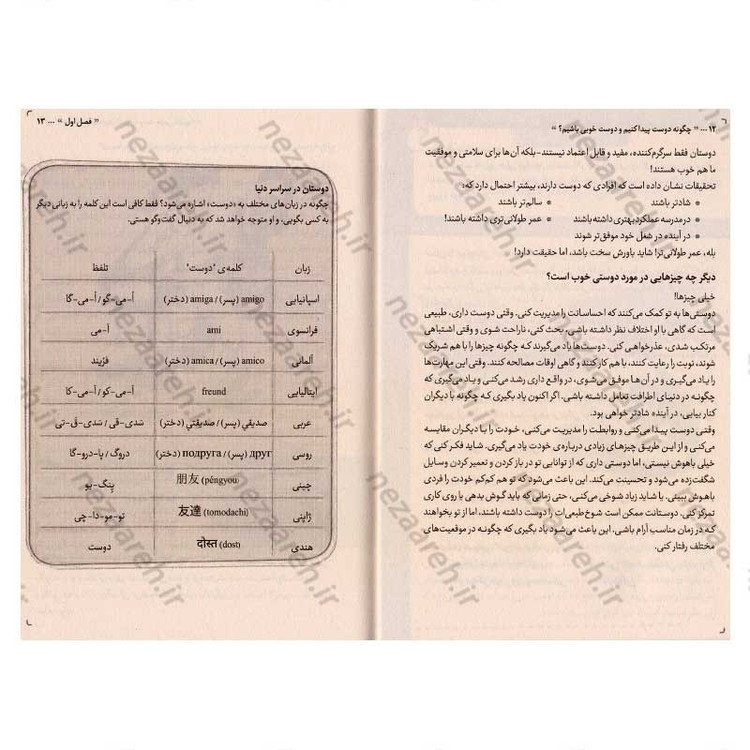 ۱۲ ... " چگونه دوست پیدا کنیم و دوست خوبی باشیم؟ "
دوستان فقط سرگرم‌کننده، مفید و قابل اعتماد نیستند-بلکه آن‌ها برای سلامتی و موفقیت
ما هم خوب هستند!
تحقیقات نشان داده است که افرادی که دوست دارند، بیشتر احتمال دارد که:
• شادتر باشند • سالم‌تر باشند
• در مدرسه عملکرد بهتری داشته باشند • عمر طولانی‌تری داشته باشند!
• در آینده در شغل خود موفق‌تر شوند
بله، عمر طولانی‌تر! شاید باورش سخت باشد، اما حقیقت دارد!
دیگر چه چیزهایی در مورد دوستی خوب است؟
خیلی چیزها!
دوستی‌ها به تو کمک می‌کنند که احساساتت را مدیریت کنی. وقتی دوستی داری، طبیعی
است که گاهی با او اختلاف نظر داشته باشی، بحث کنی، ناراحت شوی و وقتی اشتباهی
مرتکب شدی، عذرخواهی کنی. دوست‌ها یاد می‌گیرند که چگونه چیزها را با هم شریک
شوند، نوبت را رعایت کنند، با هم کار کنند و گاهی اوقات مصالحه کنند. وقتی این مهارت‌ها
را یاد می‌گیری و در آن‌ها موفق می‌شوی، در واقع داری رشد می‌کنی و یاد می‌گیری که
چگونه در دنیای اطرافت تعامل داشته باشی. اگر اکنون یاد بگیری که چگونه با دیگران
کنار بیایی، در آینده شادتر خواهی بود.
وقتی دوست پیدا می‌کنی و روابطت را مدیریت می‌کنی، خودت را با دیگران مقایسه
می‌کنی و از این طریق چیزهای زیادی درباره‌ی خودت یاد می‌گیری. شاید فکر کنی که
خیلی باهوش نیستی، اما دوستی داری که از توانایی تو در باز کردن و تعمیر کردن وسایل
شگفت‌زده می‌شود و تحسینت می‌کند. این باعث می‌شود که تو هم کم‌کم خودت را فردی
باهوش ببینی. یا شاید زیاد شوخی می‌کنی، حتی زمانی که باید گوش بدهی یا روی کاری
تمرکز کنی. دوستانت ممکن است شوخ‌طبعی‌ات را دوست داشته باشند، اما از تو بخواهند
که در زمان مناسب آرام باشی. این باعث می‌شود یاد بگیری که چگونه در موقعیت‌های
مختلف رفتار کنی.
" فصل اول " ... ۱۳
دوستان در سراسر دنیا
چگونه در زبان‌های مختلف به «دوست» اشاره می‌شود؟ فقط کافی است این کلمه را به زبانی دیگر
به کسی بگویی، و او متوجه خواهد شد که به دنبال گفت‌وگو هستی.
زبان کلمه‌ی "دوست" تلفظ
اسپانیایی amigo (پسر) / amiga (دختر) اَ-می-گو / اَ-می-گا
فرانسوی ami اَ-می
آلمانی amico (پسر) / amica (دختر) فرُیند
ایتالیایی freund اَ-می-کو / اَ-می-کا
عربی صديقي (پسر) / صديقتي (دختر) صَدی-قی / صَدی-قَ-تی
روسی друг (پسر) / подруга (دختر) دروگ / پا-درو-گا
چینی 朋友 (péngyou) پِنگ-یو
ژاپنی 友達 (tomodachi) تو-مو-دا-چی
هندی दोस्त (dost) دوست
nezaareh.ir